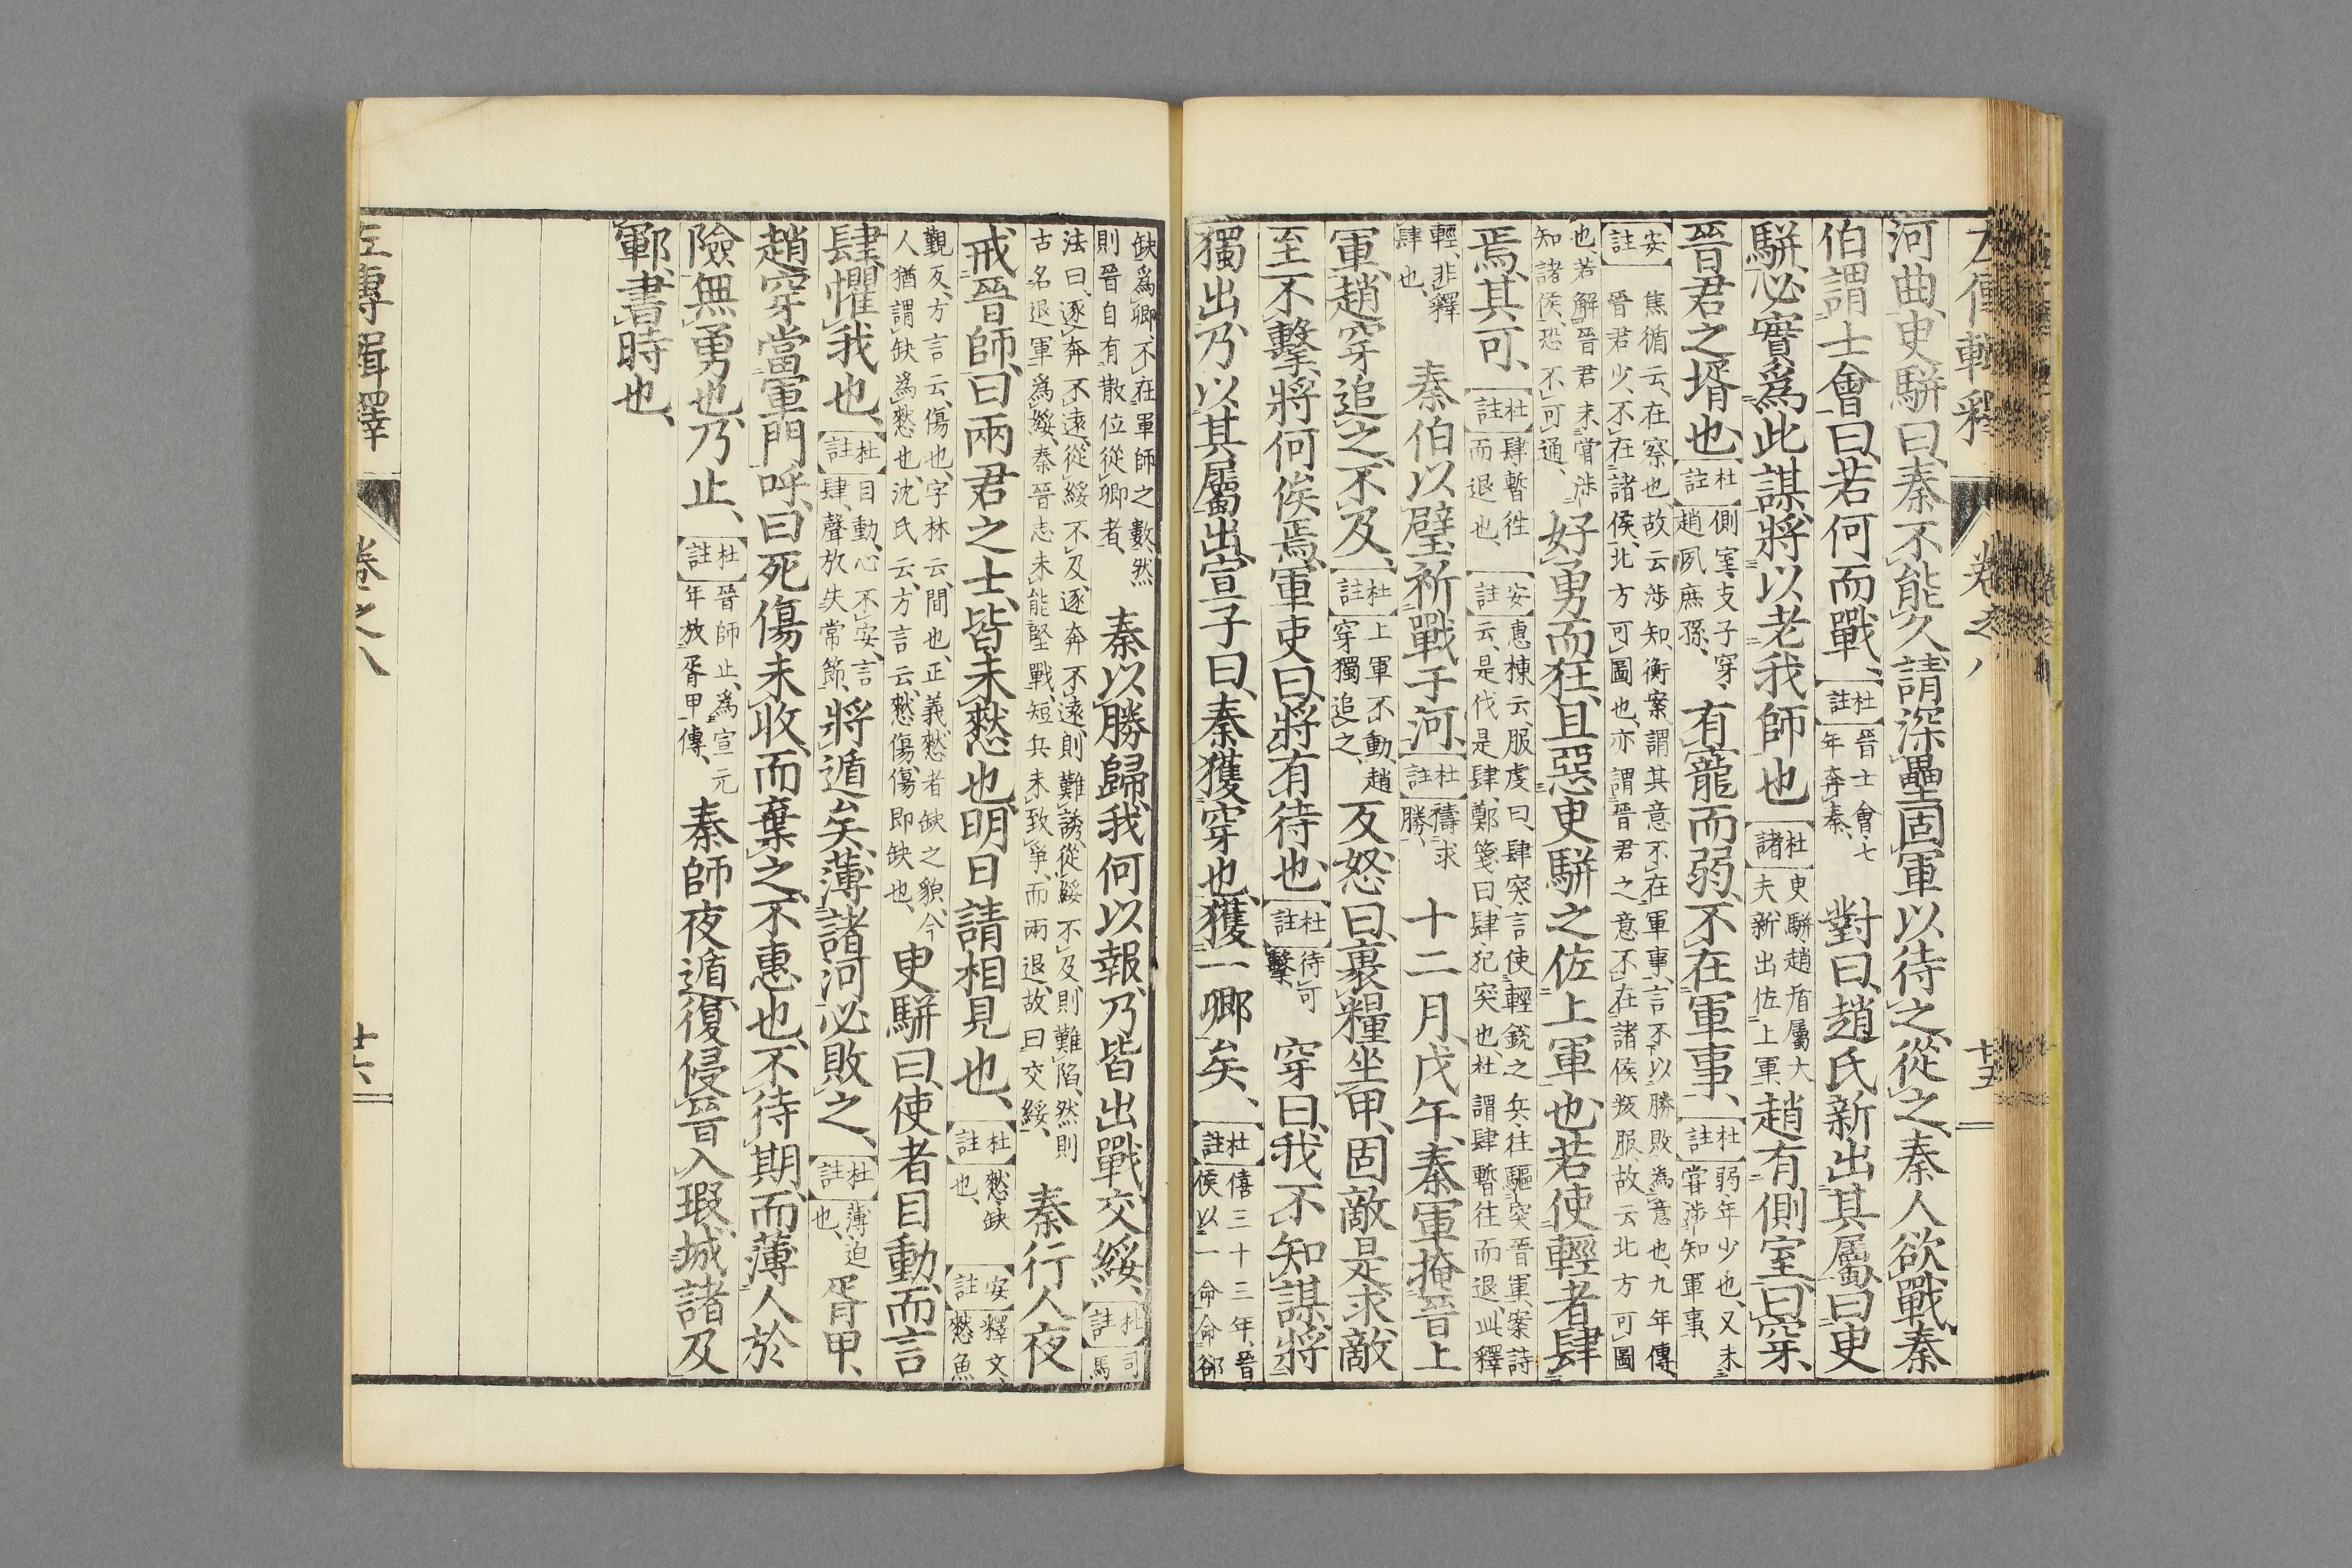 河曲、臾駢曰、秦不能久、請深壘固軍以待之、從之、秦人欲戰、秦
伯謂士會曰、若何而戰、杜註晉士會、七年奔秦、對曰、趙氏新出其屬、曰臾
駢、必實爲此謀、將以老我師也、杜諸臾駢、趙盾屬大夫、新出佐上軍、趙有側室、曰穿、
晉君之壻也、杜註側室、支子、穿、趙夙庶孫、有寵而弱、不在軍事、杜註弱、年少也、又未嘗涉知軍事、
安註焦循云、在察也、故云涉知、衡案謂其意不在軍事、言不以勝敗爲意也、九年傳晉君少、不在諸侯、北方可圖也、亦謂晉君之意不在諸侯叛服、故云北方可圖
也、若解晉君未嘗涉知諸侯、恐不可通、好勇而狂、且惡臾駢之佐上軍也、若使輕者肆
焉、其可、杜註肆、暫往而退也、安註惠棟云、服虔曰、肆突、言使輕銳之兵、往驅突晉軍、案詩云、是伐是肆、鄭箋曰、肆、犯突也、杜謂肆暫往而退、此釋
輕、非釋肆也、秦伯以璧祈戰于河、杜註禱求勝、十二月、戊午、秦軍掩晉上
軍、趙穿追之、不及、杜註上軍不動、趙穿獨追之、反怒曰、裹糧坐甲、固敵是求、敵
至不擊、將何俟焉、軍吏曰、將有待也、杜註待可擊、穿曰、我不知謀、將
獨出、乃以其屬出、宣子曰、秦獲穿也、獲一卿矣、杜註僖三十三年、晉侯以一命命郤
缺爲卿、不在軍師之數、然則晉自有散位從卿者、秦以勝歸、我何以報、乃皆出戰、交綏、杜註司馬
法曰、逐奔不遠、從綏不及、逐奔不遠、則難誘、從綏不及、則難陷、然則古名退軍爲綏、秦晉志未能堅戰、短兵未致爭、而兩退、故曰交綏、秦行人夜
戒晉師、曰兩君之士、皆未憖也、明日請相見也、杜註憖缺也、安註釋文、憖魚
覲反、方言云、傷也、字林云、間也、正義、憖者缺之貌、今人猶謂缺爲憖也、沈氏云、方言云、憖傷、傷即缺也、臾駢曰、使者目動、而言
肆、懼我也、杜註目動、心不安、言肆、聲放失常節、將遁矣、薄諸河必敗之、杜註薄、迫也、胥甲、
趙穿、當軍門呼、曰死傷未收、而棄之、不惠也、不待期、而薄人於
險、無勇也、乃止、杜註晉師止、爲宣元年放胥甲傳、秦師夜遁、復侵晉、入瑕、城諸及
鄆、書時也、
左傳輯釋
卷之八
十六
左傳輯釋
卷之八
十五